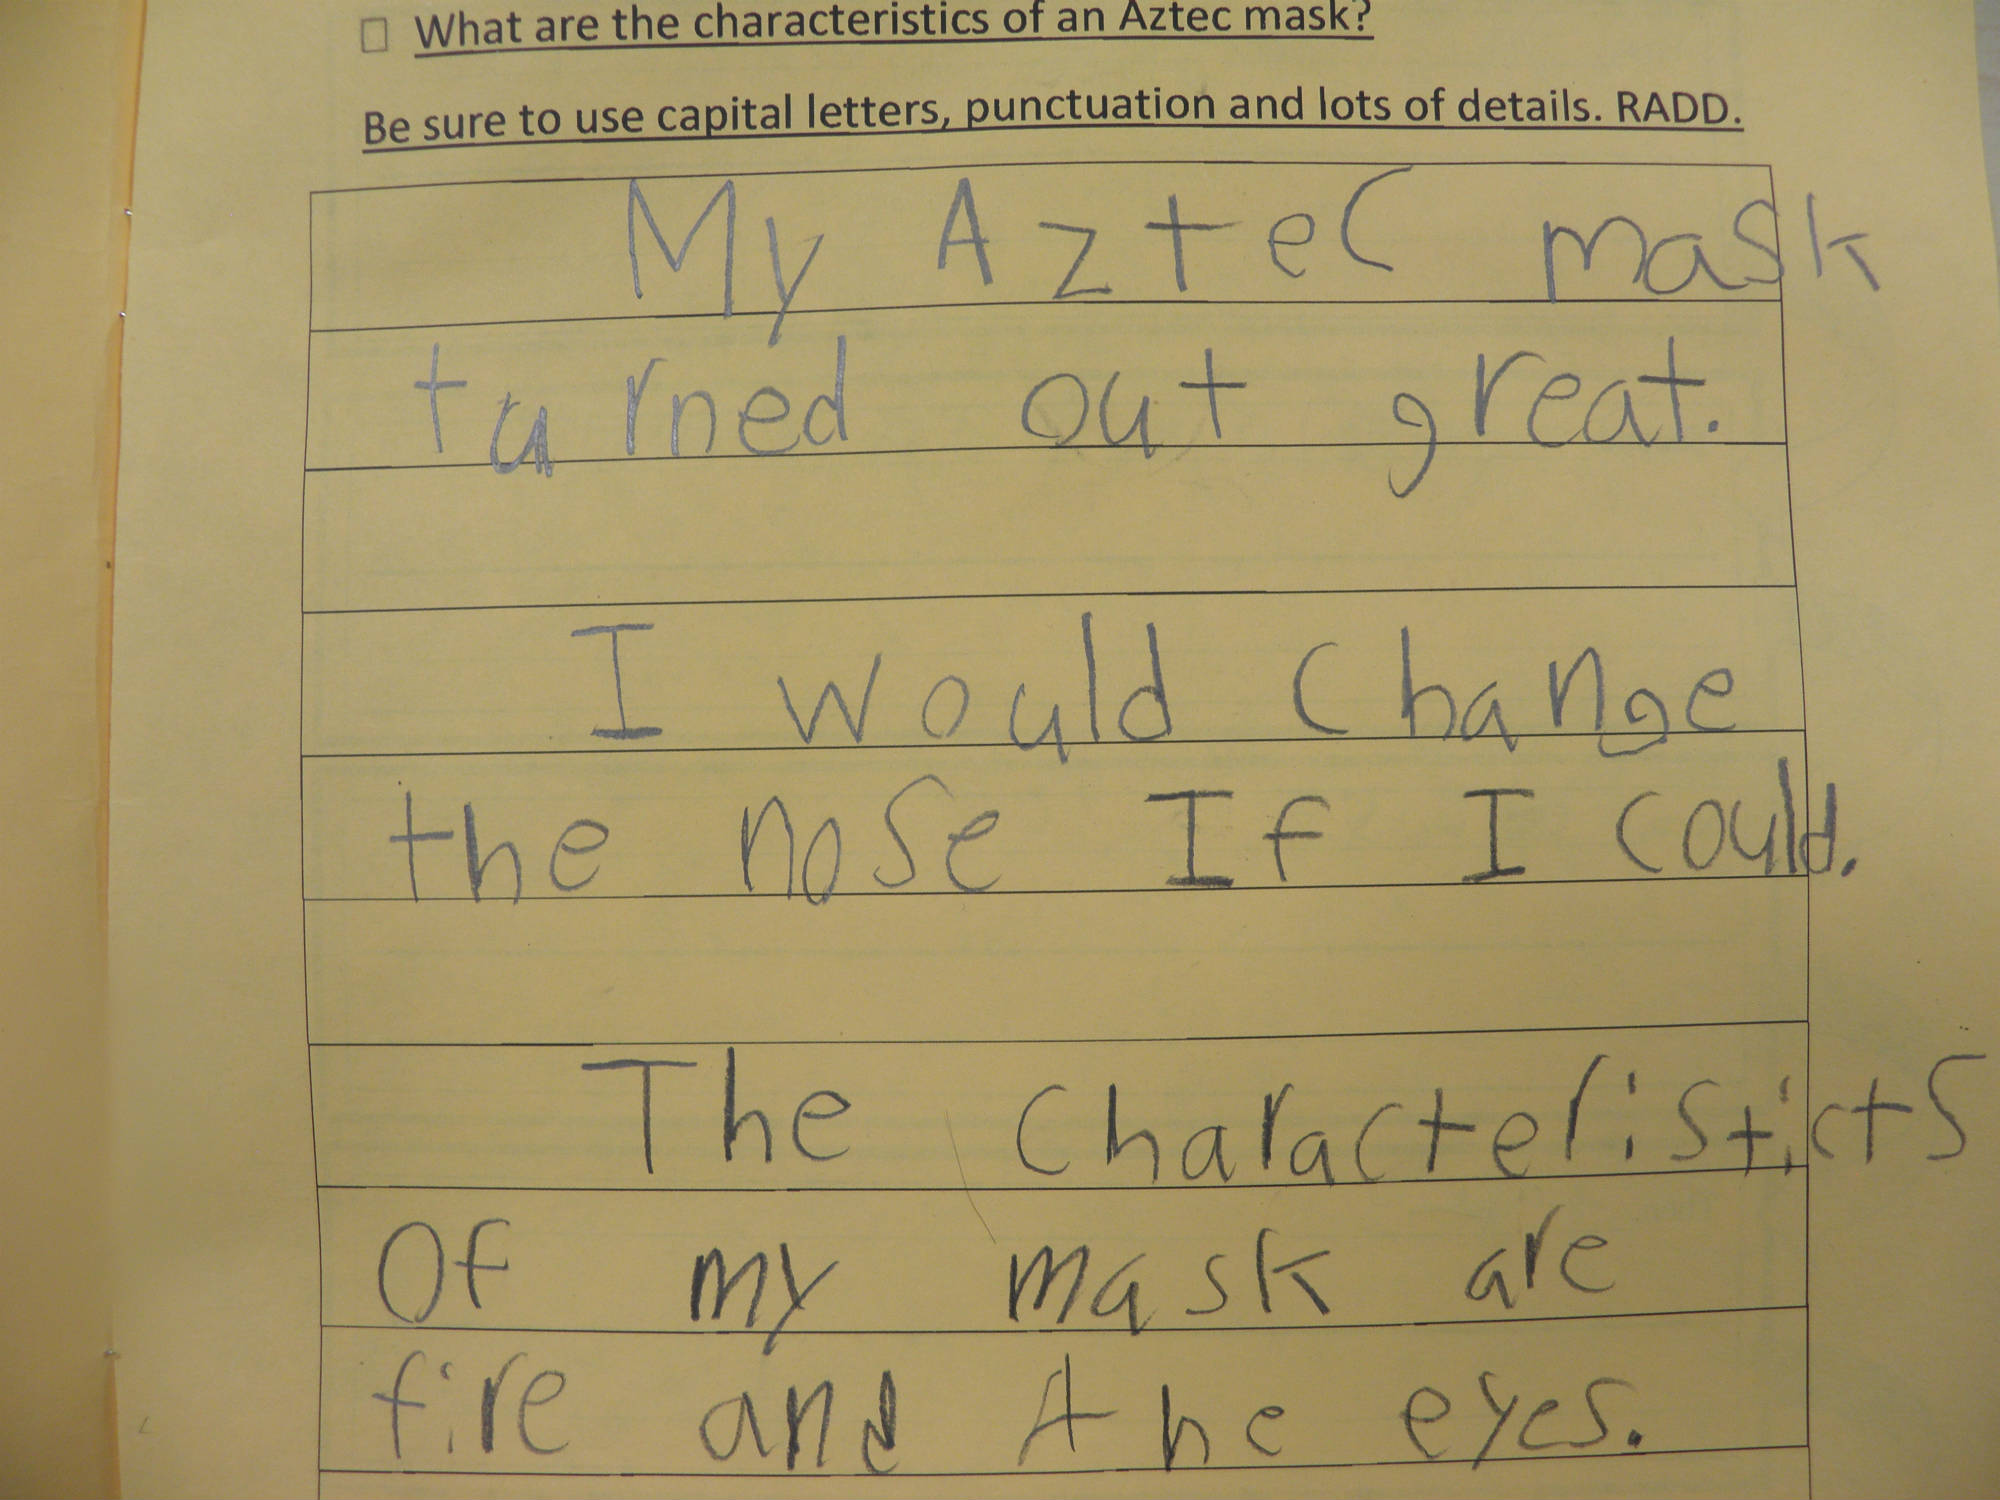 What are the characteristics of an Aztec mask?
Be sure to use capital letters, punctuation and lots of details. RADD.
My Aztec mask
turned out great.
I would change
the nose If I could.
The characteristicts
Of my mask are
fire and the eyes.